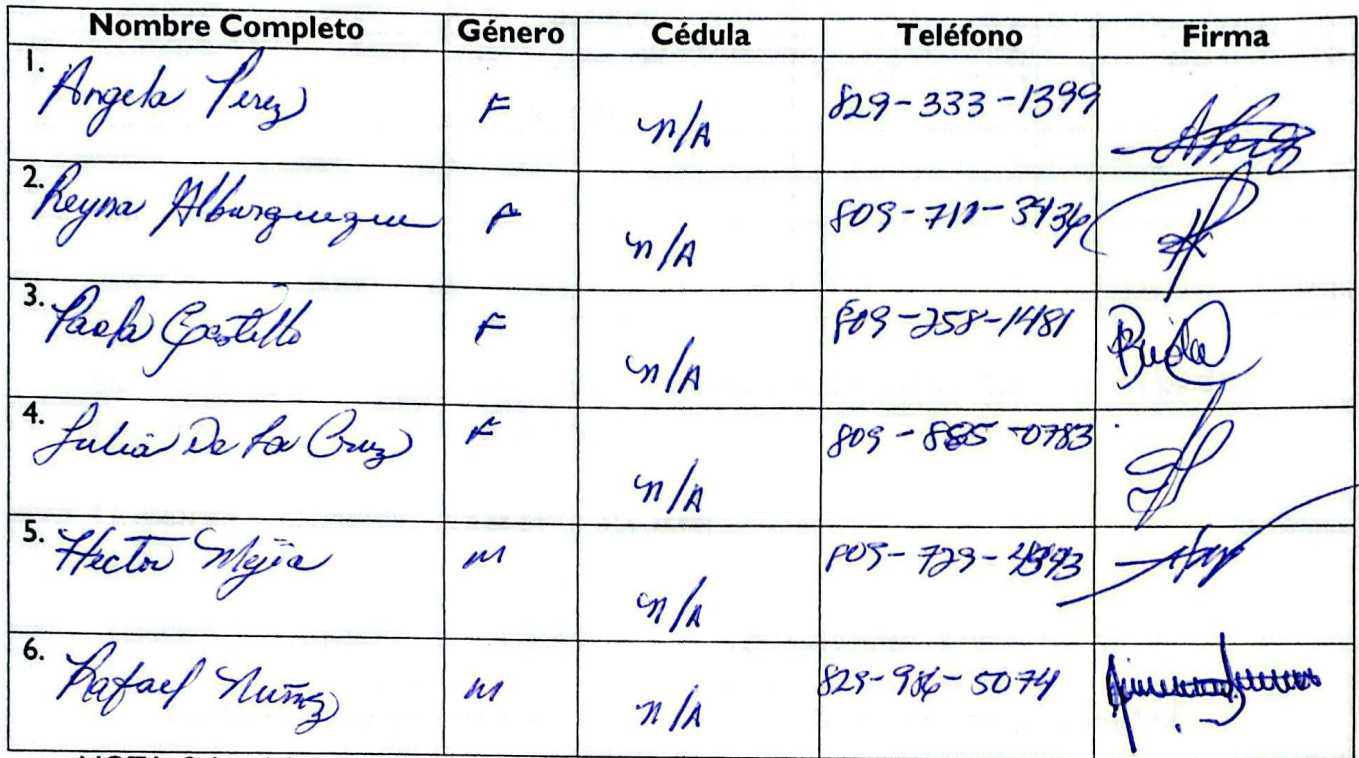 Nombre Completo Género Cédula Teléfono Firma
1. Angela Perez F n/A 829-333-1399
2. Reyna Alburquerque F n/A 809-711-3436
3. Paola Castillo F n/A 809-258-1481
4. Julia De La Cruz F n/A 809-885-0783
5. Hector Mejia M n/A 809-729-
6. Rafael Nuñez M n/A 829-986-5074